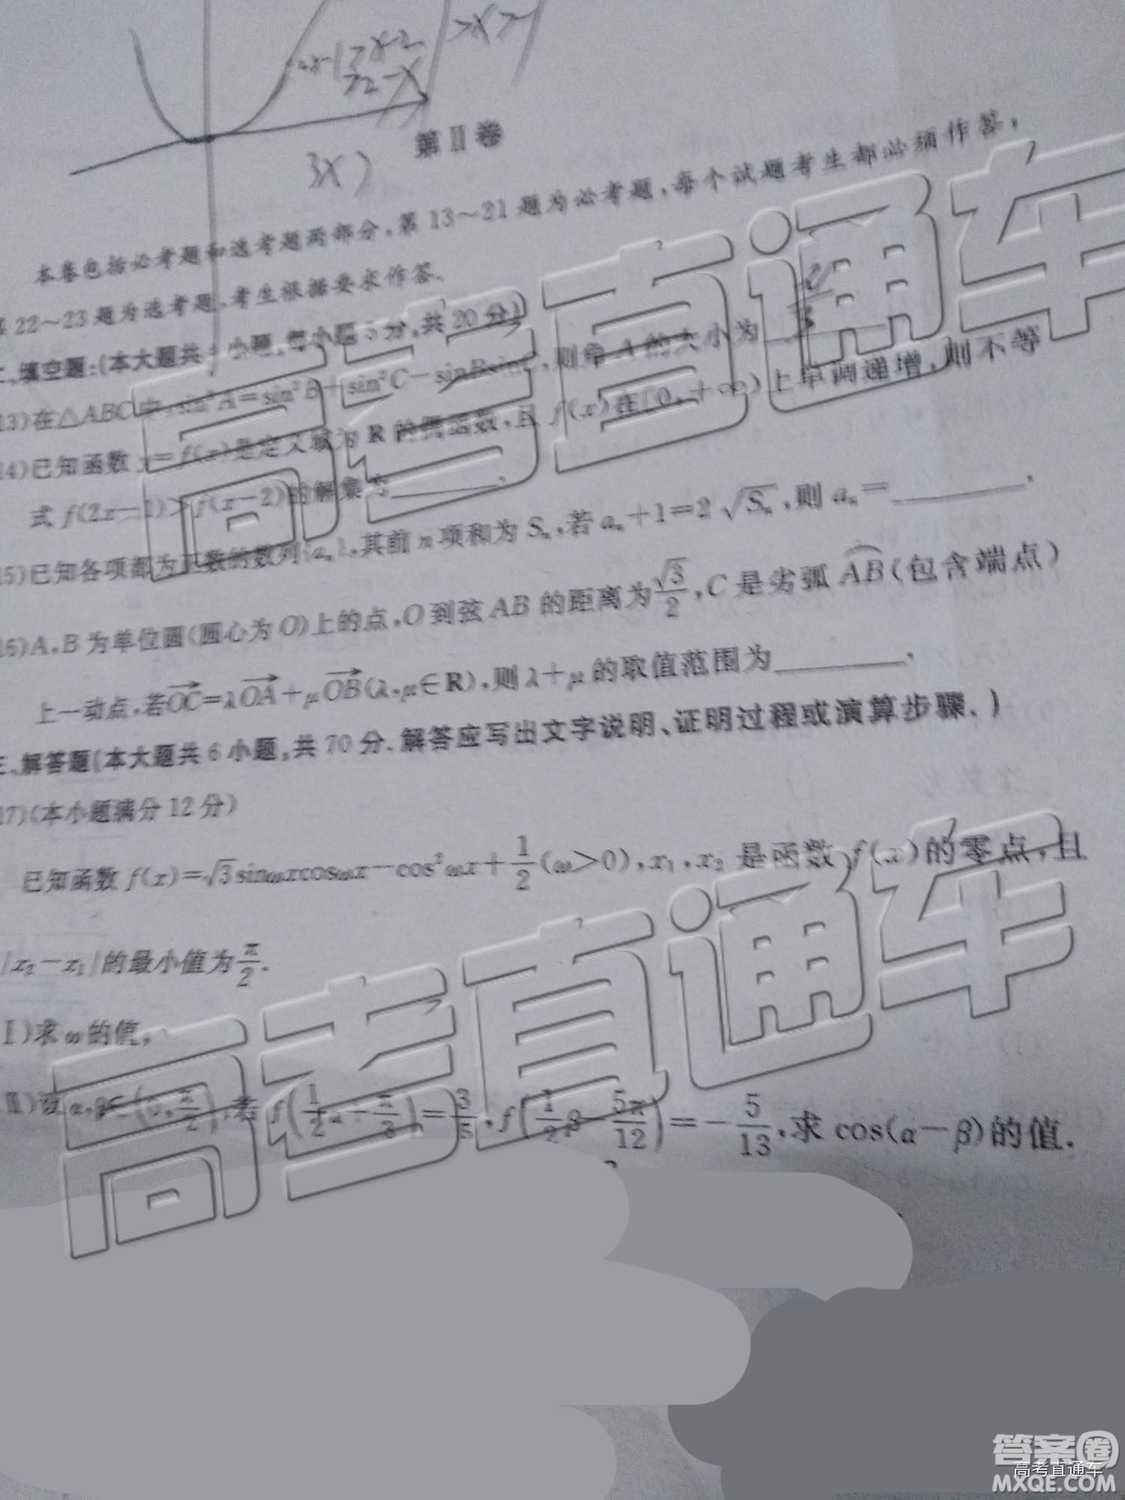 第Ⅱ卷
3x)
本卷包括必考题和选考题两部分,第13~21题为必考题,每个试题考生都必须作答,
22~23题为选考题,考生根据要求作答.
填空题:(本大题共4小题,每小题5分,共20分)
13)在△ABC中,sin²A=sin²B+sin²C-sinBsinC,则角A的大小为
14)已知函数y=f(x)是定义域为R的偶函数,且f(x)在[0,+∞)上单调递增,则不等
式f(2x-1)>f(x-2)的解集为________.
15)已知各项都为正数的数列{aₙ},其前n项和为Sₙ,若aₙ+1=2√Sₙ,则aₙ=________.
16)A,B为单位圆(圆心为O)上的点,O到弦AB的距离为√3/2,C是劣弧AB(包含端点)
上一动点,若OC=λOA+μOB(λ,μ∈R),则λ+μ的取值范围为________.
三、解答题(本大题共6小题,共70分.解答应写出文字说明、证明过程或演算步骤.)
17)(本小题满分12分)
已知函数f(x)=√3sinωxcosωx-cos²ωx+1/2(ω>0),x₁,x₂是函数f(x)的零点,且
|x₂-x₁|的最小值为π/2.
Ⅰ)求ω的值;
Ⅱ)设α,β∈(0,π/2),若f(1/2α+π/3)=3/5,f(1/2β-5π/12)=-5/13,求cos(α-β)的值.
高考直通车
高考直通车
答案圈
高考直通车
MXQE.COM